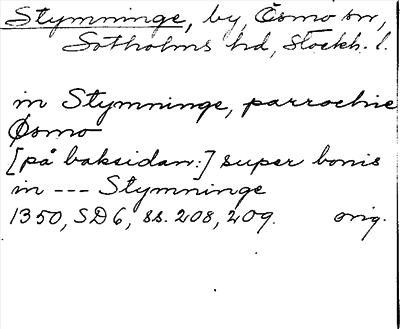 Stymninge, by, Ösmo sn,
Sotholms hd, Stockh. l.
in Stymninge, parrochie
Øsmo
[på baksidan:] super bonis
in --- Stymninge
1350, SD 6, ss. 208, 209. orig.